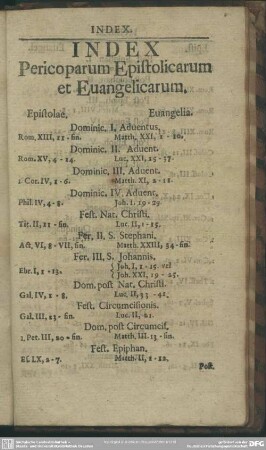 INDEX.
INDEX
Pericoparum Epistolicarum
et Euangelicarum.
Epistolae. Euangelia.
Dominic. I, Aduentus.
Rom. XIII, 11 - fin. Matth. XXI, 1 - 10.
Dominic. II. Aduent.
Rom. XV, 4 - 14. Luc. XXI, 25 - 37.
Dominic. III. Aduent.
1. Cor. IV, 1 - 6. Matth. XI, 2 - 11.
Dominic. IV. Aduent.
Phil. IV, 4 - 8. Joh. I. 19 - 29.
Fest. Nat. Christi.
Tit. II, 11 - fin. Luc. II, 1 - 15.
Fer. II, S. Stephani.
Act. VI, 8 - VII, fin. Matth. XXIII, 34 - fin.
Fer. III, S. Johannis.
Ebr. I, 1 - 13. { Joh. I, 1 - 15. vel
{ Joh. XXI, 19 - 25.
Dom. post Nat. Christi.
Gal. IV, 1 - 8. Luc. II, 33 - 42.
Fest. Circumcisionis.
Gal. III, 23 - fin. Luc. II, 21.
Dom. post Circumcis.
1. Pet. III, 20 - fin. Matth. III. 13 - fin.
Fest. Epiphan.
Ef. LX, 1 - 7. Matth. II, 1 - 12.
Post.
DFG